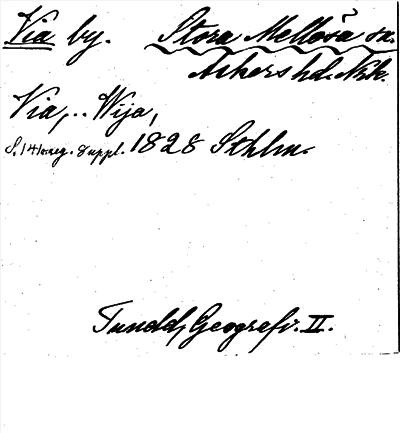 Via by. Stora Mellösa sn.
Askers hd. Nrk.
Via, .. Wija,
Suppl. 1828 Sthlm.
Tuneld, Geografi. II.